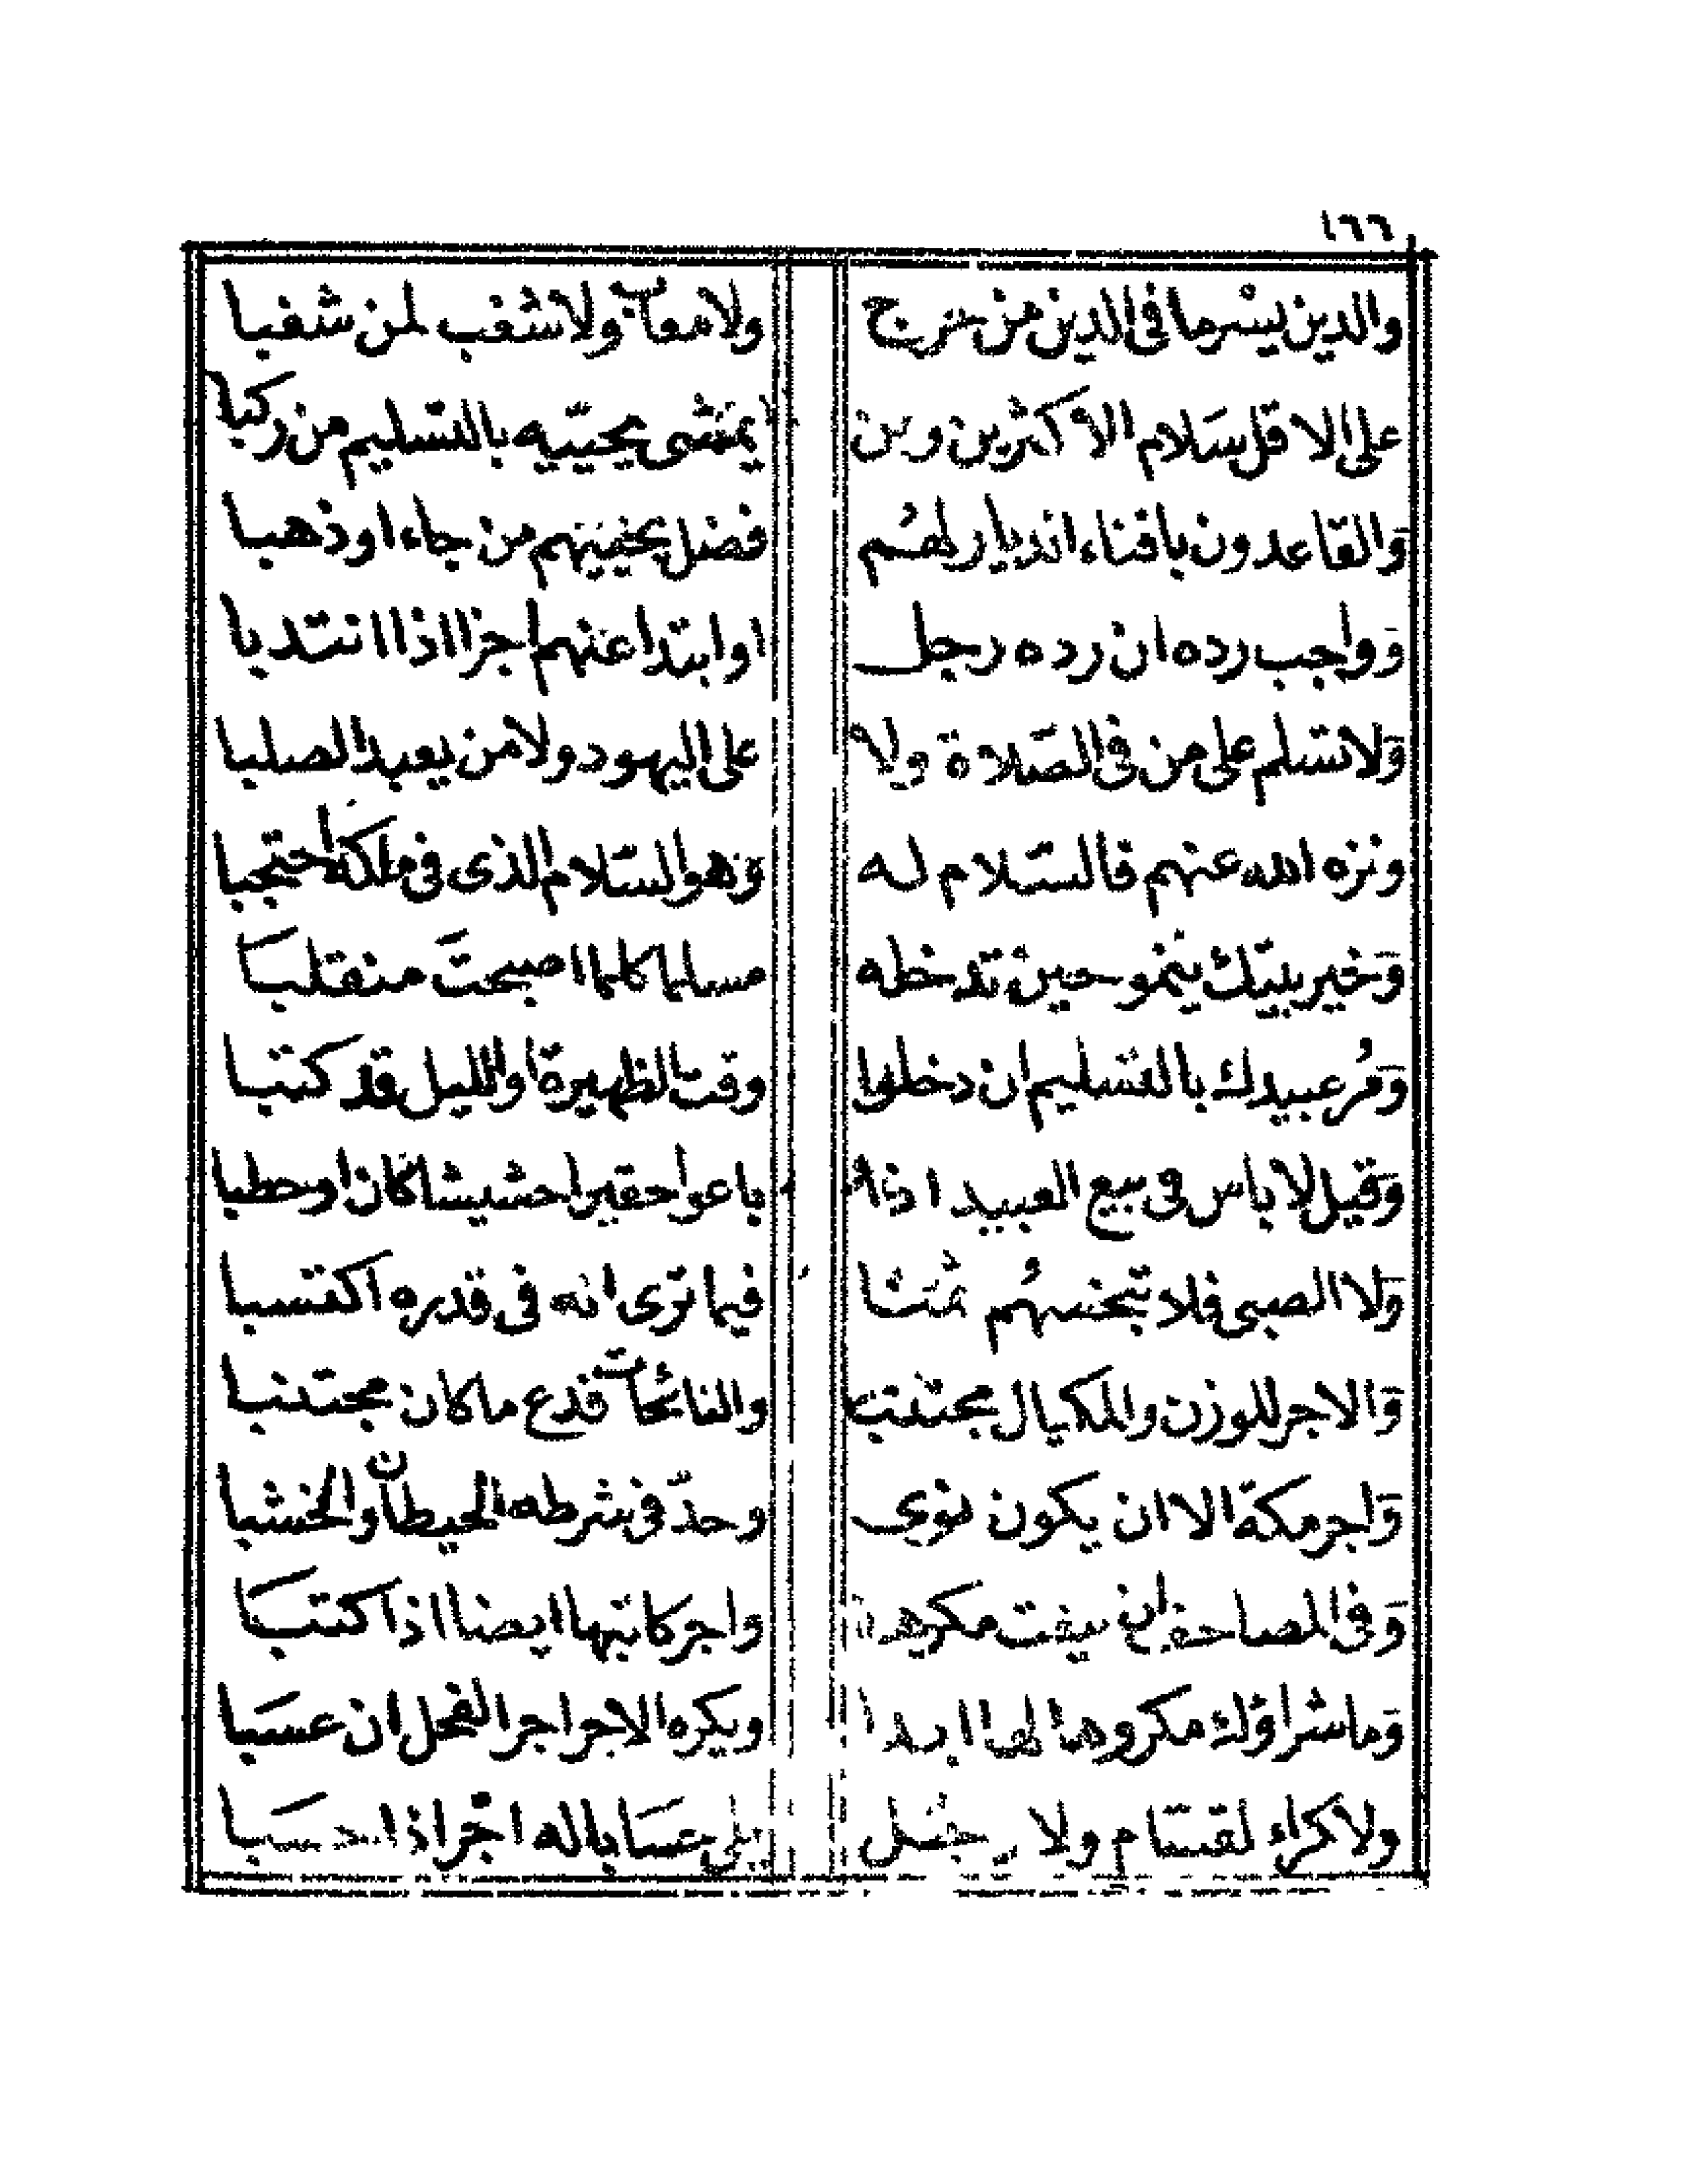 ١٦٦
والدين يسْر ما فى الدين من حرج ولا معاب ولا شغب لمن شغبا
على الاقل سَلام الاكثرين ومن يمشى يحيّيه بالتسليم من ركبا
وَالقاعدون بافناء الديار لهُم فضل يحييهم من جاء او ذهبا
وَواجب رده ان رده رجل او ابتدا عنهم اجزا اذا انتدبا
وَلا تسلم على من فى الصَلاة ولا على اليهود ولا من يعبد الصلبا
ونزه الله عنهم فالسّلام له وَهو السّلام الذى فى ملكه احتجبا
وَخير بيتك ينمو حين تدخله مسلما كلما اصبحتَ منقلبَا
وَمُر عبيدك بالتسليم ان دخلوا وقت الظهيرة او الليل قد كتبا
وَقيل لا باس فى بيع العبيد اذا باعوا حقيرا حشيشا كان او حطبا
وَلا الصبى فلا تبخسهُم ثمنا فيما ترى انه فى قدره اكتسبا
وَالاجر للوزن والمكيال مجتنب والنائحات فدع ما كان مجتنبا
وَاجر مكة الا ان يكون نوى وحدّ فى شرطه الحيطان والخشبا
وَفى المصاحف ان بيعت مكرهة واجر كاتبها ايضا اذا كتبَا
وَما شراؤك مكروها لها ابدا ويكره الاجر اجر الفحل ان عسَبا
ولا كراء لقسّام ولا رجُل يلى عسَابا له اجرا اذا حسَبا